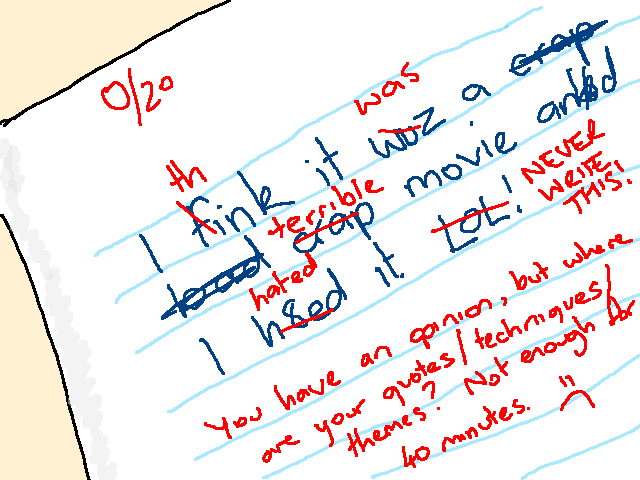 0/20
was
I fink it woz a crap
th
terrible
bad crap movie and
NEVER
WRITE
THIS!
hated
I h8ed it LOL!
You have an opinion, but where
are your quotes/techniques/
themes? Not enough for
40 minutes. :(